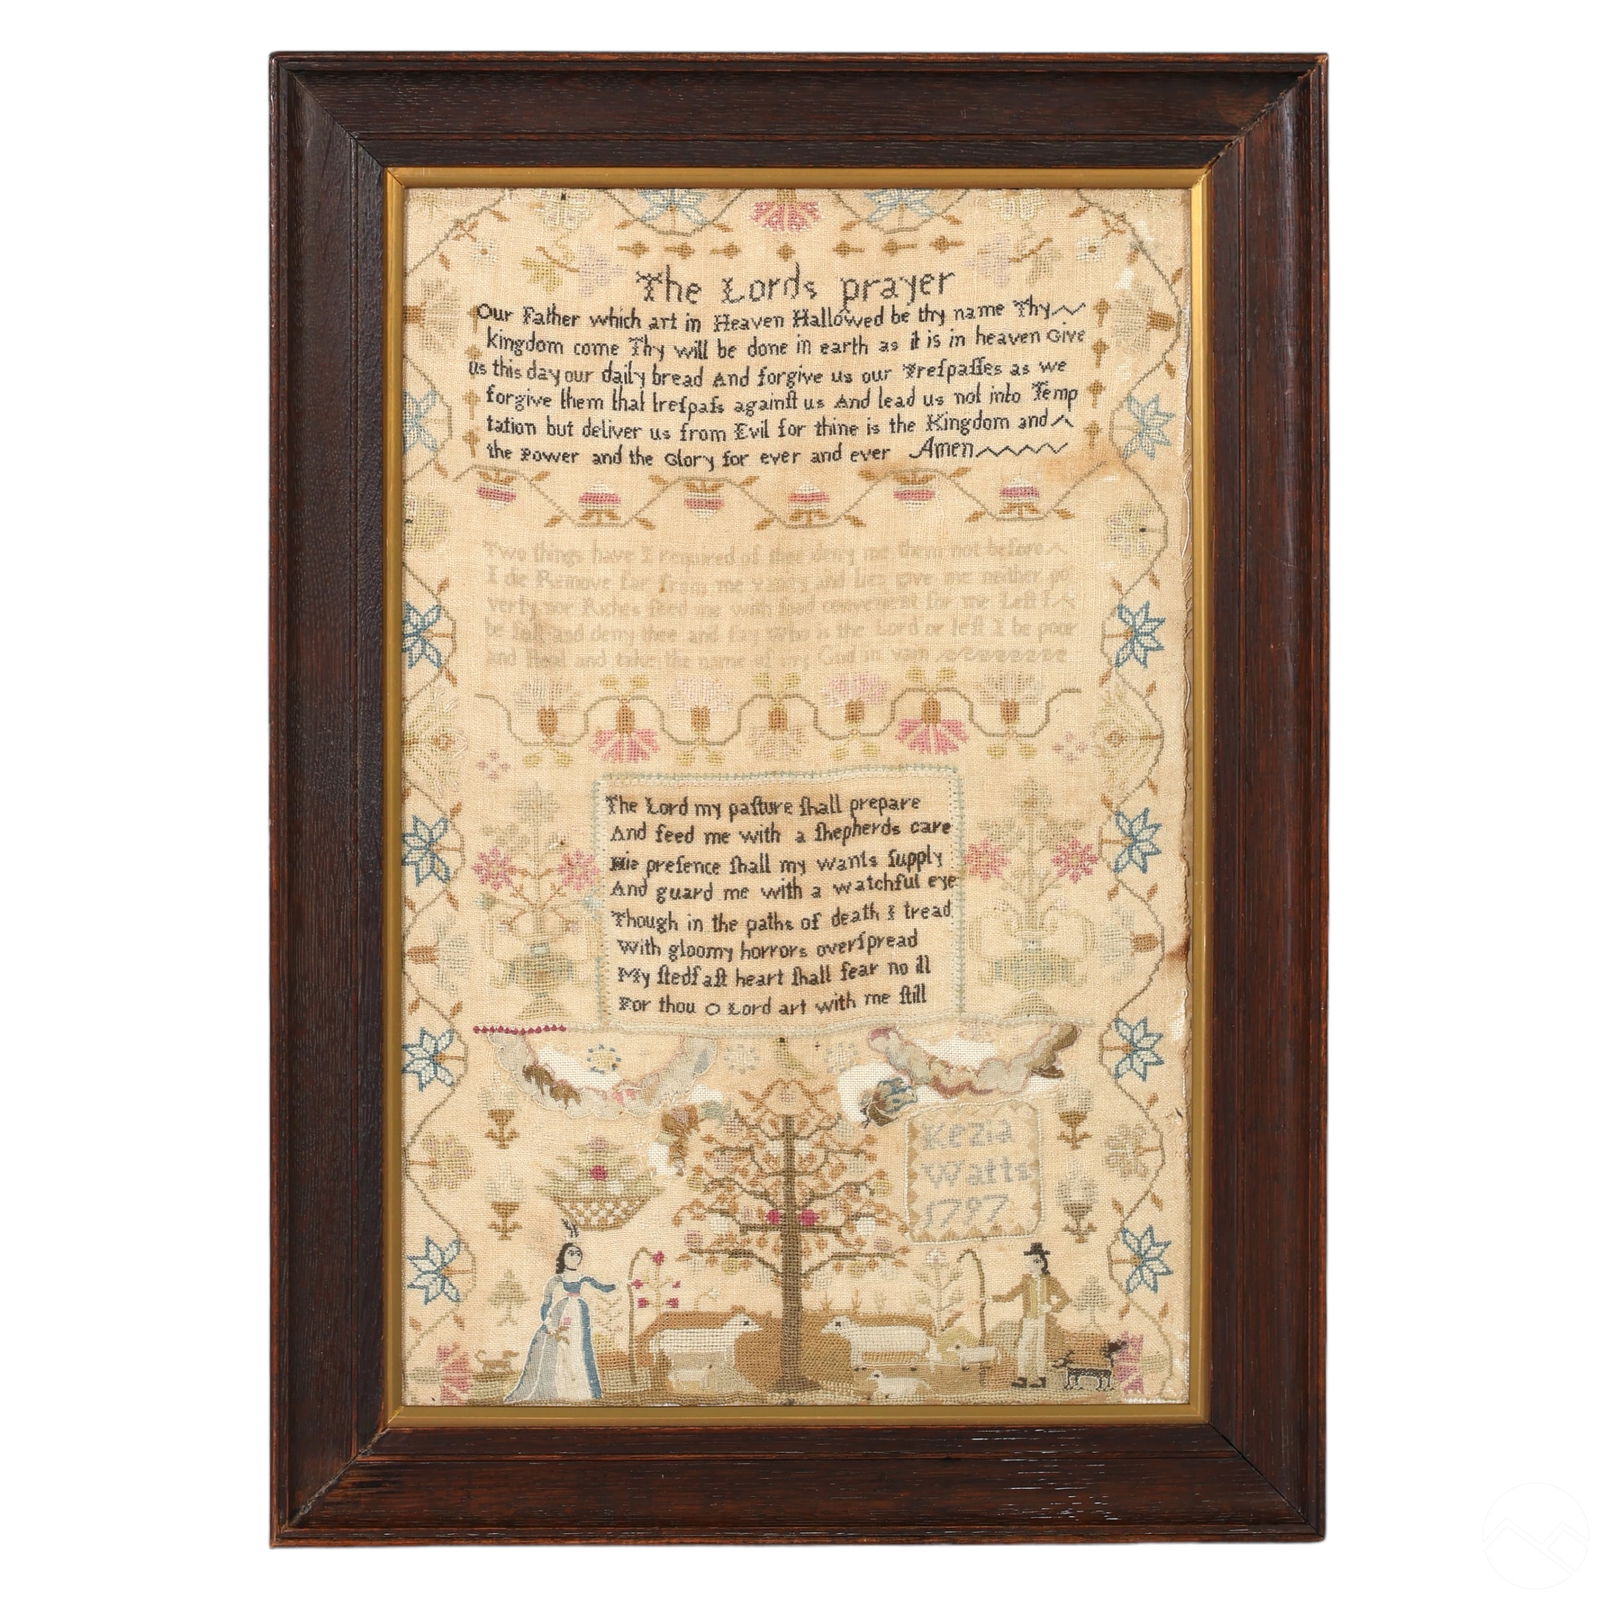 The Lords prayer
Our Father which art in Heaven Hallowed be thy name Thy
kingdom come Thy will be done in earth as it is in heaven Give
us this day our daily bread And forgive us our Treſpaſſes as we
forgive them that treſpaſs againſt us And lead us not into Temp
tation but deliver us from Evil for thine is the Kingdom and
the Power and the Glory for ever and ever Amen
Two things have I required of thee deny me them not before
I die Remove far from me vanity and lies give me neither po
verty nor Riches feed me with food convenient for me Left I
be full and deny thee and ſay Who is the Lord or leſt I be poor
and ſteal and take the name of my God in vain
The Lord my paſture ſhall prepare
And feed me with a ſhepherds care
His preſence ſhall my wants ſupply
And guard me with a watchful eye
Though in the paths of death I tread
With gloomy horrors overſpread
My ſtedfaſt heart ſhall fear no ill
For thou O Lord art with me ſtill
Kezia
Watts
1797